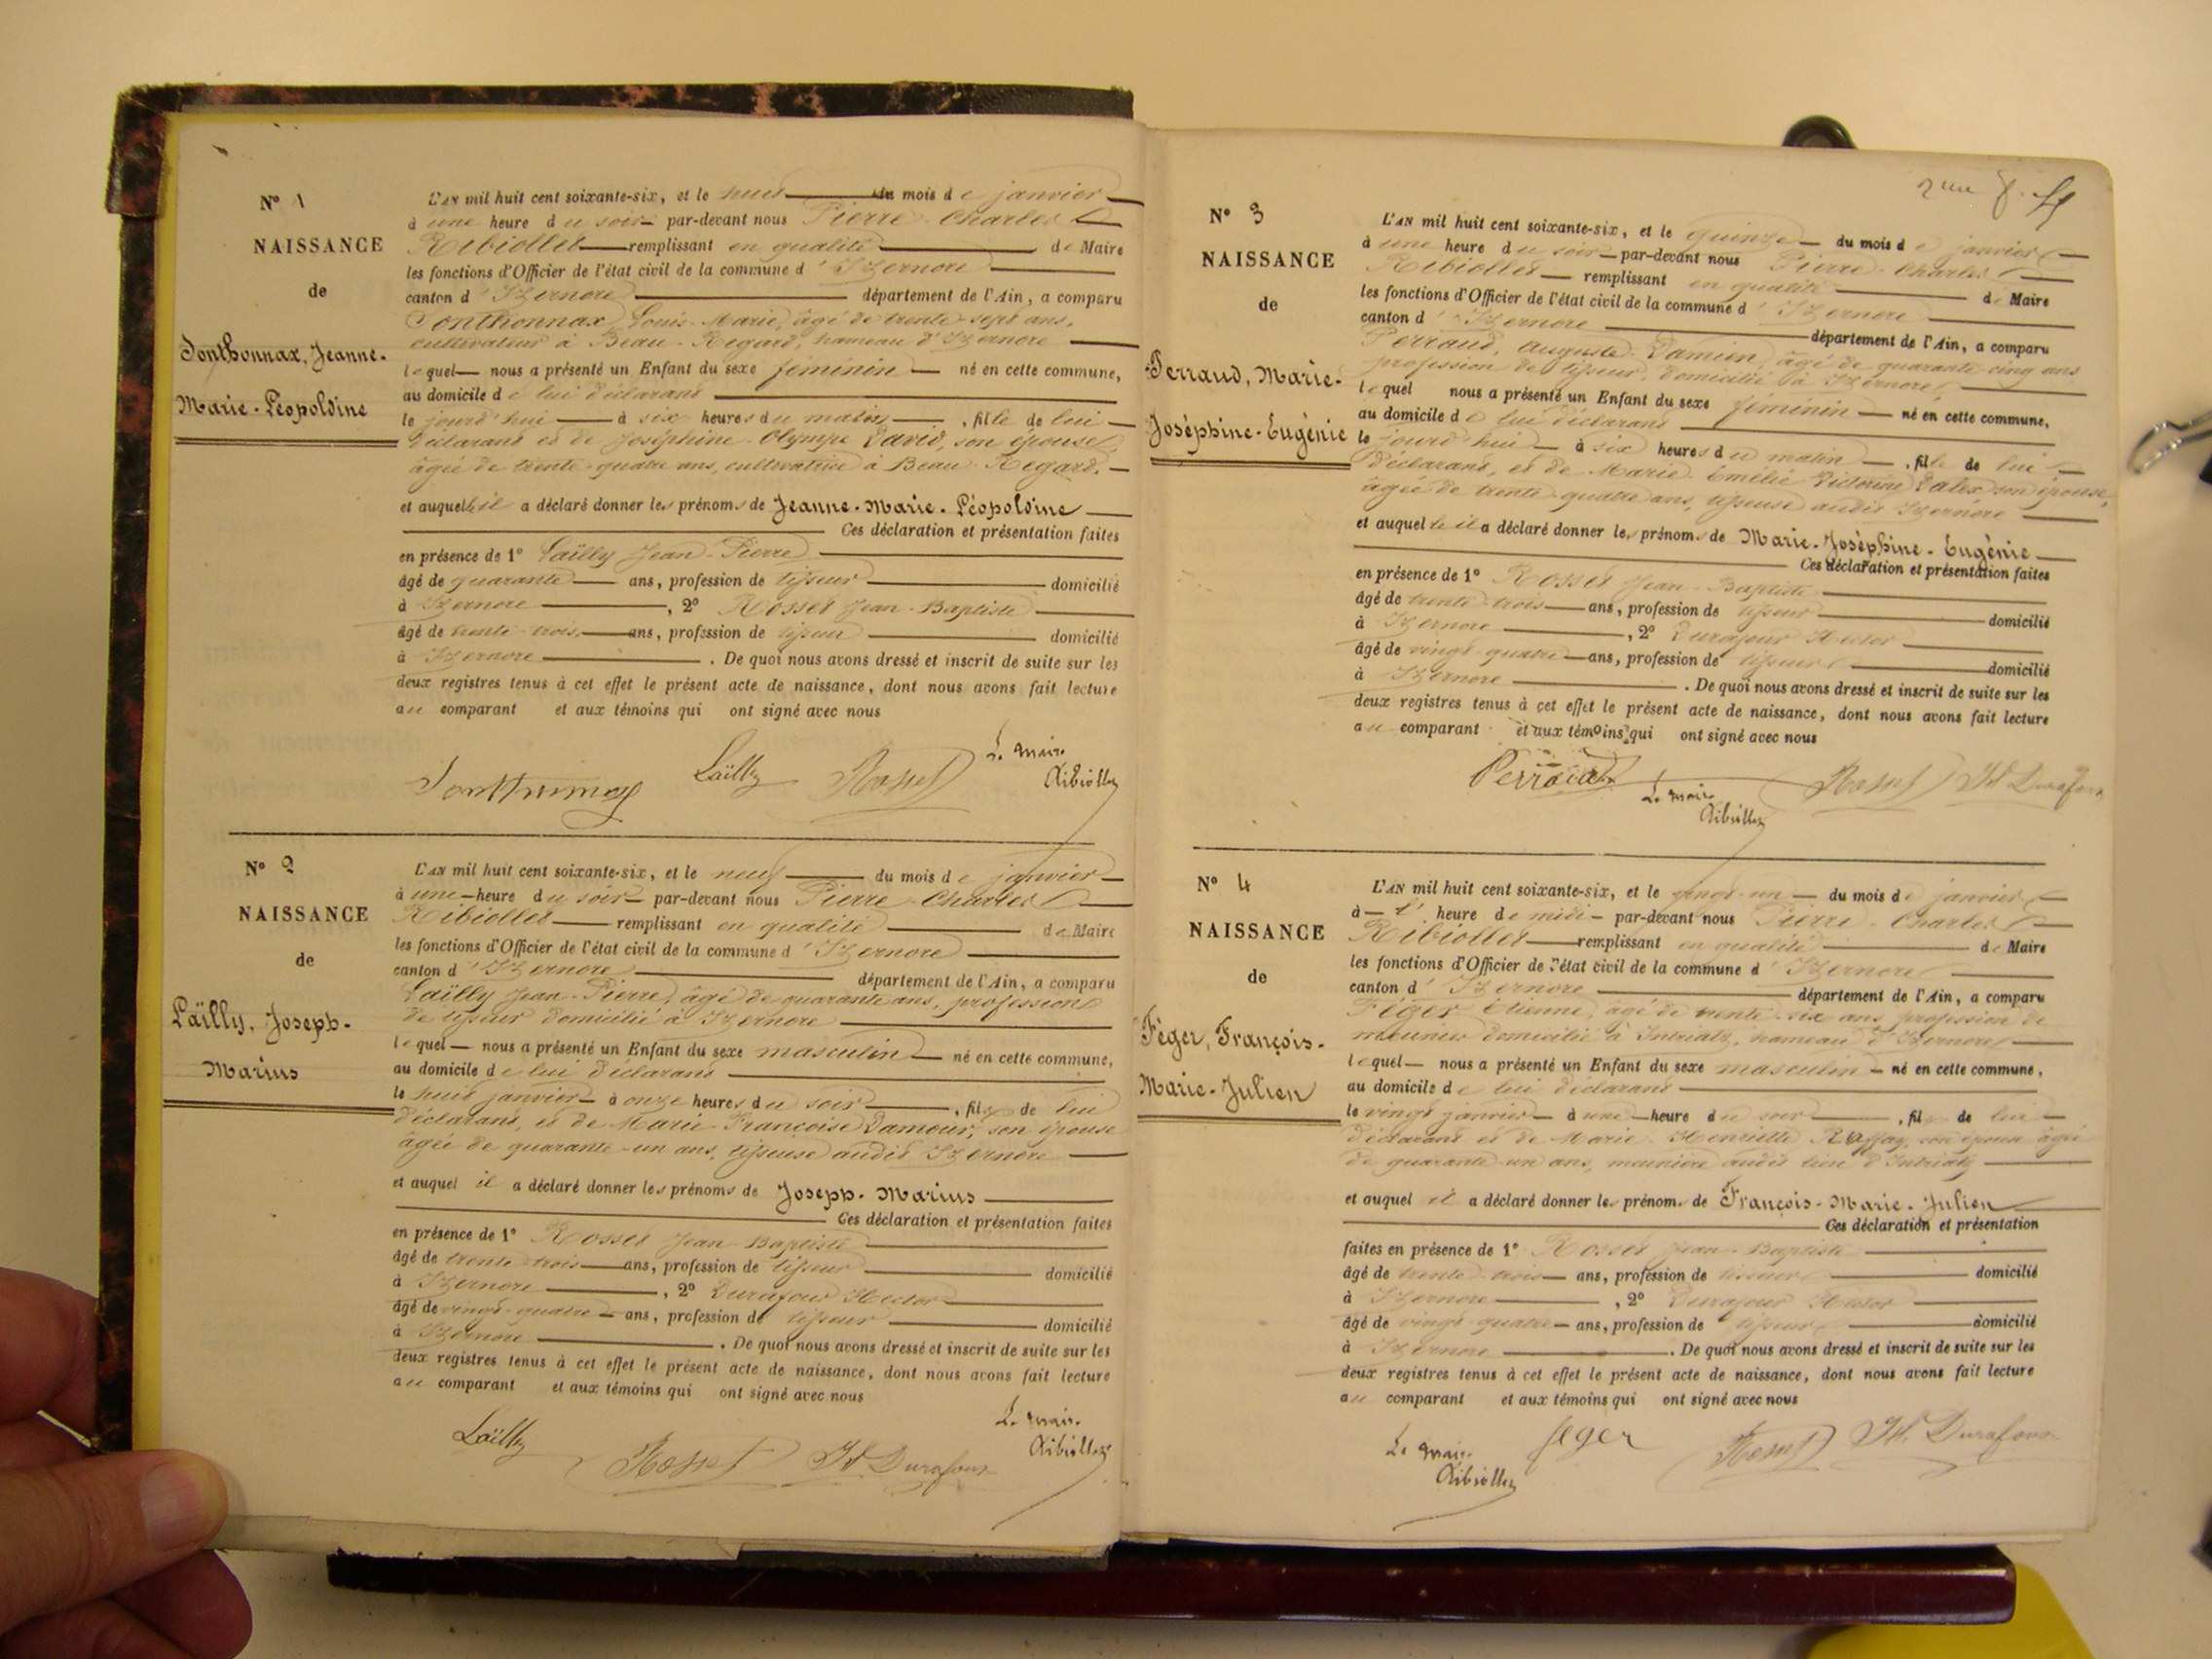 N° 1
NAISSANCE
de
Tonthonnax, Jeanne-
Marie-Léopoldine
L'AN mil huit cent soixante-six, et le huit du mois de janvier
à une heure du soir par-devant nous Pierre-Charles
Ribiollet remplissant en qualité de Maire
les fonctions d'Officier de l'état civil de la commune d'Izernore
canton d'Izernore département de l'Ain, a comparu
Tonthonnax, Louis-Marie, âgé de trente-sept ans,
cultivateur à Beau-Regard, hameau d'Izernore
lequel nous a présenté un Enfant du sexe féminin né en cette commune,
au domicile de lui déclarant
le jourd'hui à six heures du matin, fille de lui
déclarant et de Joséphine-Olympe David, son épouse
âgée de trente-quatre ans, cultivatrice à Beau-Regard.
et auquelle il a déclaré donner les prénoms de Jeanne-Marie-Léopoldine
Ces déclaration et présentation faites
en présence de 1° Laïlly Jean-Pierre
âgé de quarante ans, profession de tisseur domicilié
à Izernore, 2° Rosset Jean-Baptiste
âgé de trente-trois ans, profession de tisseur domicilié
à Izernore. De quoi nous avons dressé et inscrit de suite sur les
deux registres tenus à cet effet le présent acte de naissance, dont nous avons fait lecture
au comparant et aux témoins qui ont signé avec nous
Tonthonnax Laïlly Rosset Le maire
Ribiollet
N° 2
NAISSANCE
de
Laïlly, Joseph-
Marius
L'AN mil huit cent soixante-six, et le neuf du mois de janvier
à une heure du soir par-devant nous Pierre-Charles
Ribiollet remplissant en qualité de Maire
les fonctions d'Officier de l'état civil de la commune d'Izernore
canton d'Izernore département de l'Ain, a comparu
Laïlly Jean-Pierre, âgé de quarante ans, profession
de tisseur domicilié à Izernore
lequel nous a présenté un Enfant du sexe masculin né en cette commune,
au domicile de lui déclarant
le huit janvier à onze heures du soir, fils de lui
déclarant, et de Marie-Françoise Damour, son épouse
âgée de quarante-un ans, tisseuse audit Izernore
et auquel il a déclaré donner les prénoms de Joseph-Marius
Ces déclaration et présentation faites
en présence de 1° Rosset Jean-Baptiste
âgé de trente-trois ans, profession de tisseur domicilié
à Izernore, 2° Durafour Hector
âgé de vingt-quatre ans, profession de tisseur domicilié
à Izernore. De quoi nous avons dressé et inscrit de suite sur les
deux registres tenus à cet effet le présent acte de naissance, dont nous avons fait lecture
au comparant et aux témoins qui ont signé avec nous
Laïlly Rosset Ht Durafour Le maire
Ribiollet
N° 3
NAISSANCE
de
Perraud, Marie-
Joséphine-Eugénie
L'AN mil huit cent soixante-six, et le quinze du mois de janvier
à une heure du soir par-devant nous Pierre-Charles
Ribiollet remplissant en qualité de Maire
les fonctions d'Officier de l'état civil de la commune d'Izernore
canton d'Izernore département de l'Ain, a comparu
Perraud, Auguste-Damien, âgé de quarante-cinq ans
profession de tisseur, domicilié à Izernore
lequel nous a présenté un Enfant du sexe féminin né en cette commune,
au domicile de lui déclarant
le jourd'hui à six heures du matin, fille de lui
déclarant, et de Marie-Emélie-Victorine son épouse,
âgée de trente-quatre ans, tisseuse audit Izernore
et auquelle il a déclaré donner les prénoms de Marie-Joséphine-Eugénie
Ces déclaration et présentation faites
en présence de 1° Rosset Jean-Baptiste
âgé de trente-trois ans, profession de tisseur domicilié
à Izernore, 2° Durafour Hector
âgé de vingt-quatre ans, profession de tisseur domicilié
à Izernore. De quoi nous avons dressé et inscrit de suite sur les
deux registres tenus à cet effet le présent acte de naissance, dont nous avons fait lecture
au comparant et aux témoins qui ont signé avec nous
Perraud Le maire Rosset Ht Durafour
Ribiollet
N° 4
NAISSANCE
de
Féger, François-
Marie-Julien
L'AN mil huit cent soixante-six, et le vingt-un du mois de janvier
à l' heure de midi par-devant nous Pierre-Charles
Ribiollet remplissant en qualité de Maire
les fonctions d'Officier de l'état civil de la commune d'Izernore
canton d'Izernore département de l'Ain, a comparu
Féger Etienne, âgé de trente-six ans, profession de
meunier domicilié à Intriatz, hameau d'Izernore
lequel nous a présenté un Enfant du sexe masculin né en cette commune,
au domicile de lui déclarant
le vingt janvier à une heure du soir, fils de lui
déclarant et de Marie-Henriette Ruffay, son épouse âgée
de quarante-un ans, meunière audit lieu d'Intriatz
et auquel il a déclaré donner les prénoms de François-Marie-Julien
Ces déclaration et présentation
faites en présence de 1° Rosset Jean-Baptiste
âgé de trente-trois ans, profession de tisseur domicilié
à Izernore, 2° Durafour Hector
âgé de vingt-quatre ans, profession de tisseur domicilié
à Izernore. De quoi nous avons dressé et inscrit de suite sur les
deux registres tenus à cet effet le présent acte de naissance, dont nous avons fait lecture
au comparant et aux témoins qui ont signé avec nous
Le maire feger Rosset Ht. Durafour
Ribiollet